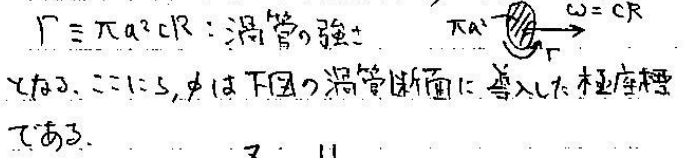 Γ ≡ πa²cR : 渦管の強さ πa² ω = cR Γ
となる. ここにs, φは下図の渦管断面に導入した極座標
である.